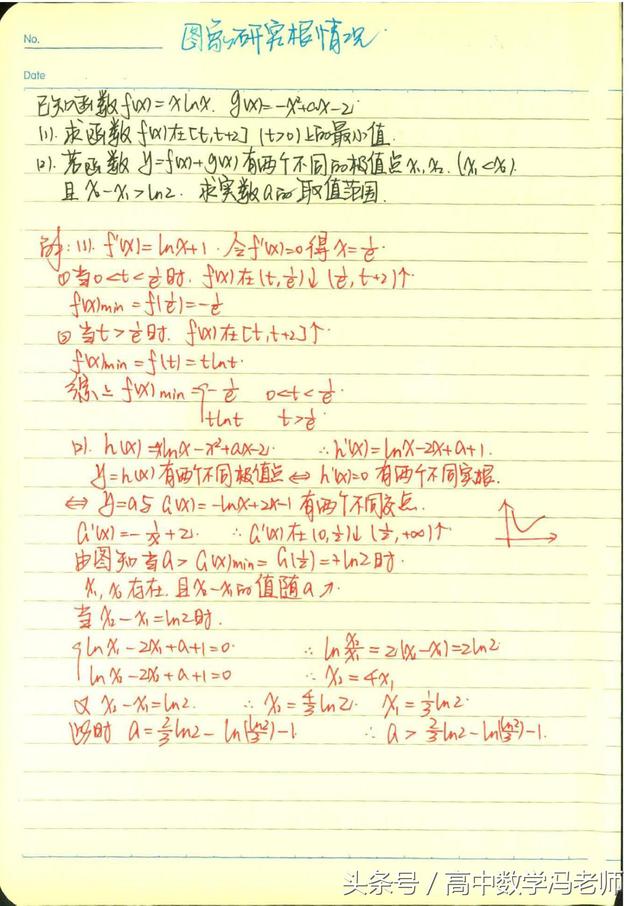 No.
图象研究根情况
Date
已知函数f(x)=xlnx. g(x)=-x²+ax-2.
(1). 求函数f(x)在[t,t+2] (t>0)上的最小值.
(2). 若函数 y=f(x)+g(x) 有两个不同的极值点x₁,x₂. (x₁<x₂).
且 x₂-x₁>ln2. 求实数a的取值范围.
解:(1). f'(x)=lnx+1. 令f'(x)=0 得 x=1/e.
① 当0<t<1/e时. f(x)在(t,1/e)↓ (1/e,t+2)↑
f(x)min=f(1/e)=-1/e
② 当t>1/e时. f(x)在[t,t+2]↑.
f(x)min=f(t)=tlnt.
综上 f(x)min={-1/e 0<t<1/e.
tlnt t>1/e.
(2). h(x)=xlnx-x²+ax-2. ∴h'(x)=lnx-2x+a+1.
y=h(x)有两个不同极值点⇔h'(x)=0 有两个不同实根.
⇔ y=a与 G(x)=-lnx+2x-1 有两个不同交点.
G'(x)=-1/x+2. ∴G'(x)在(0,1/2)↓(1/2,+∞)↑
由图知 当a>G(x)min=G(1/2)=+ln2时.
x₁,x₂存在. 且x₂-x₁的值随a↗.
当 x₂-x₁=ln2时.
{lnx₁-2x₁+a+1=0. ∴ln x₂/x₁=2(x₂-x₁)=2ln2.
lnx₂-2x₂+a+1=0 ∴x₂=4x₁
又 x₂-x₁=ln2. ∴x₂=4/3 ln2. x₁=1/3 ln2.
此时 a=2/3 ln2-ln(ln2/3)-1 ∴a>2/3 ln2-ln(ln2/3)-1.
头条号 / 高中数学冯老师